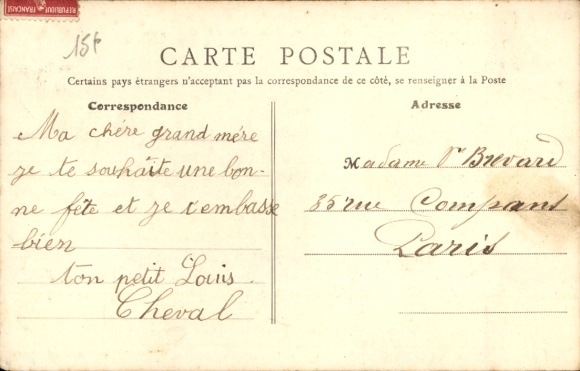 REPUBLIQUE FRANCAISE
15f
CARTE POSTALE
Certains pays étrangers n'acceptant pas la correspondance de ce côté, se renseigner à la Poste
Correspondance
Ma chére grand mére
je te souhaite une bon-
ne fête et je t'embasse
bien
ton petit Louis
Cheval
Adresse
Madame Vve Brevard
85 rue Compans
Paris